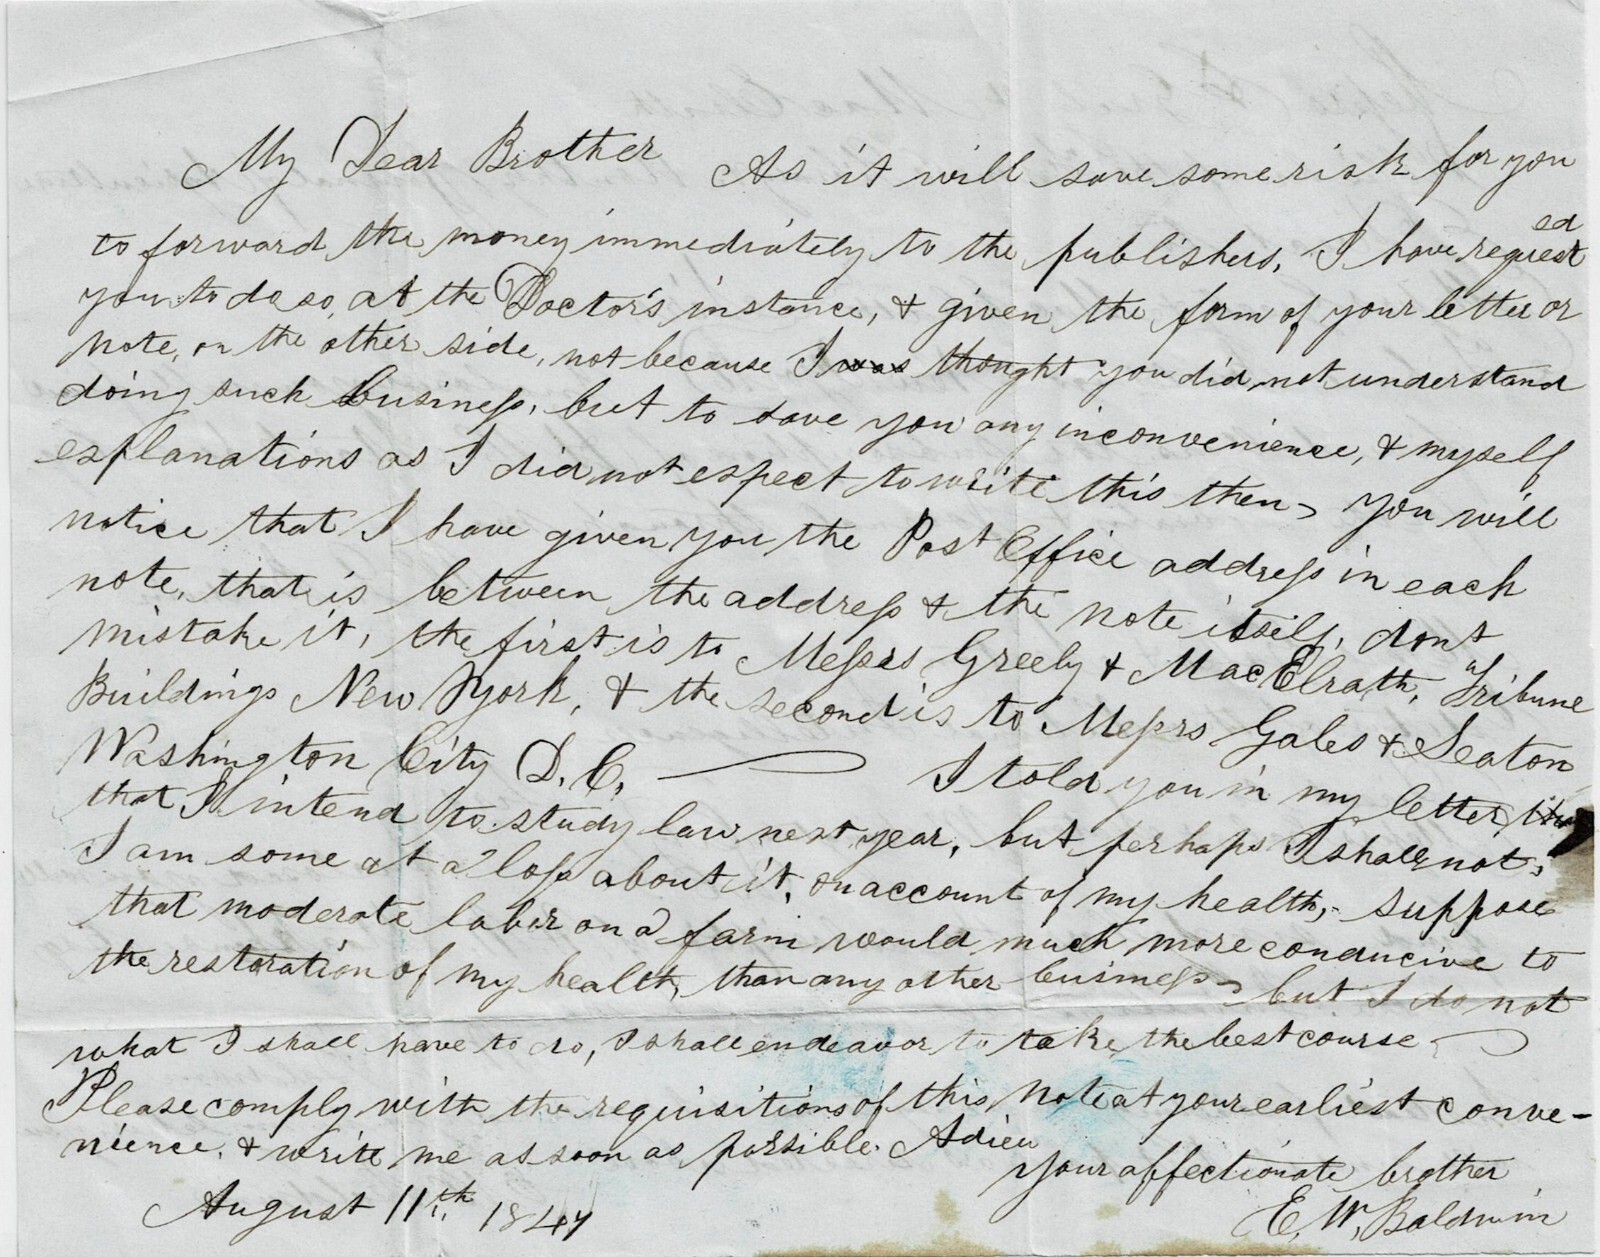 My Dear Brother As it will save some risk for you
to forward the money immediately to the publishers, I have requested
you to do so, at the Doctor's instance, & given the form of your letter or
note, on the other side, not because I was thought you did not understand
doing such business, but to save you any inconvenience, & myself
explanations as I did not expect to write this then, you will
notice that I have given you the Post Office address in each
note, that is between the address & the note itself, dont
mistake it, the first is to Messrs Greely & MacElrath, "Tribune
Buildings New York, & the second is to Messrs Gales & Seaton
Washington City D. C. I told you in my letter
that I intend to study law next year, but perhaps I shall not,
I am some at a loss about it, on account of my health, suppose
that moderate labor on a farm would much more conducive to
the restoration of my health, than any other business, but I do not
what I shall have to do, I shall endeavor to take the best course,
Please comply with the requisitions of this note at your earliest conve-
nience, & write me as soon as possible. Adieu
your affectionate brother
August 11th 1847 E. W. Baldwin